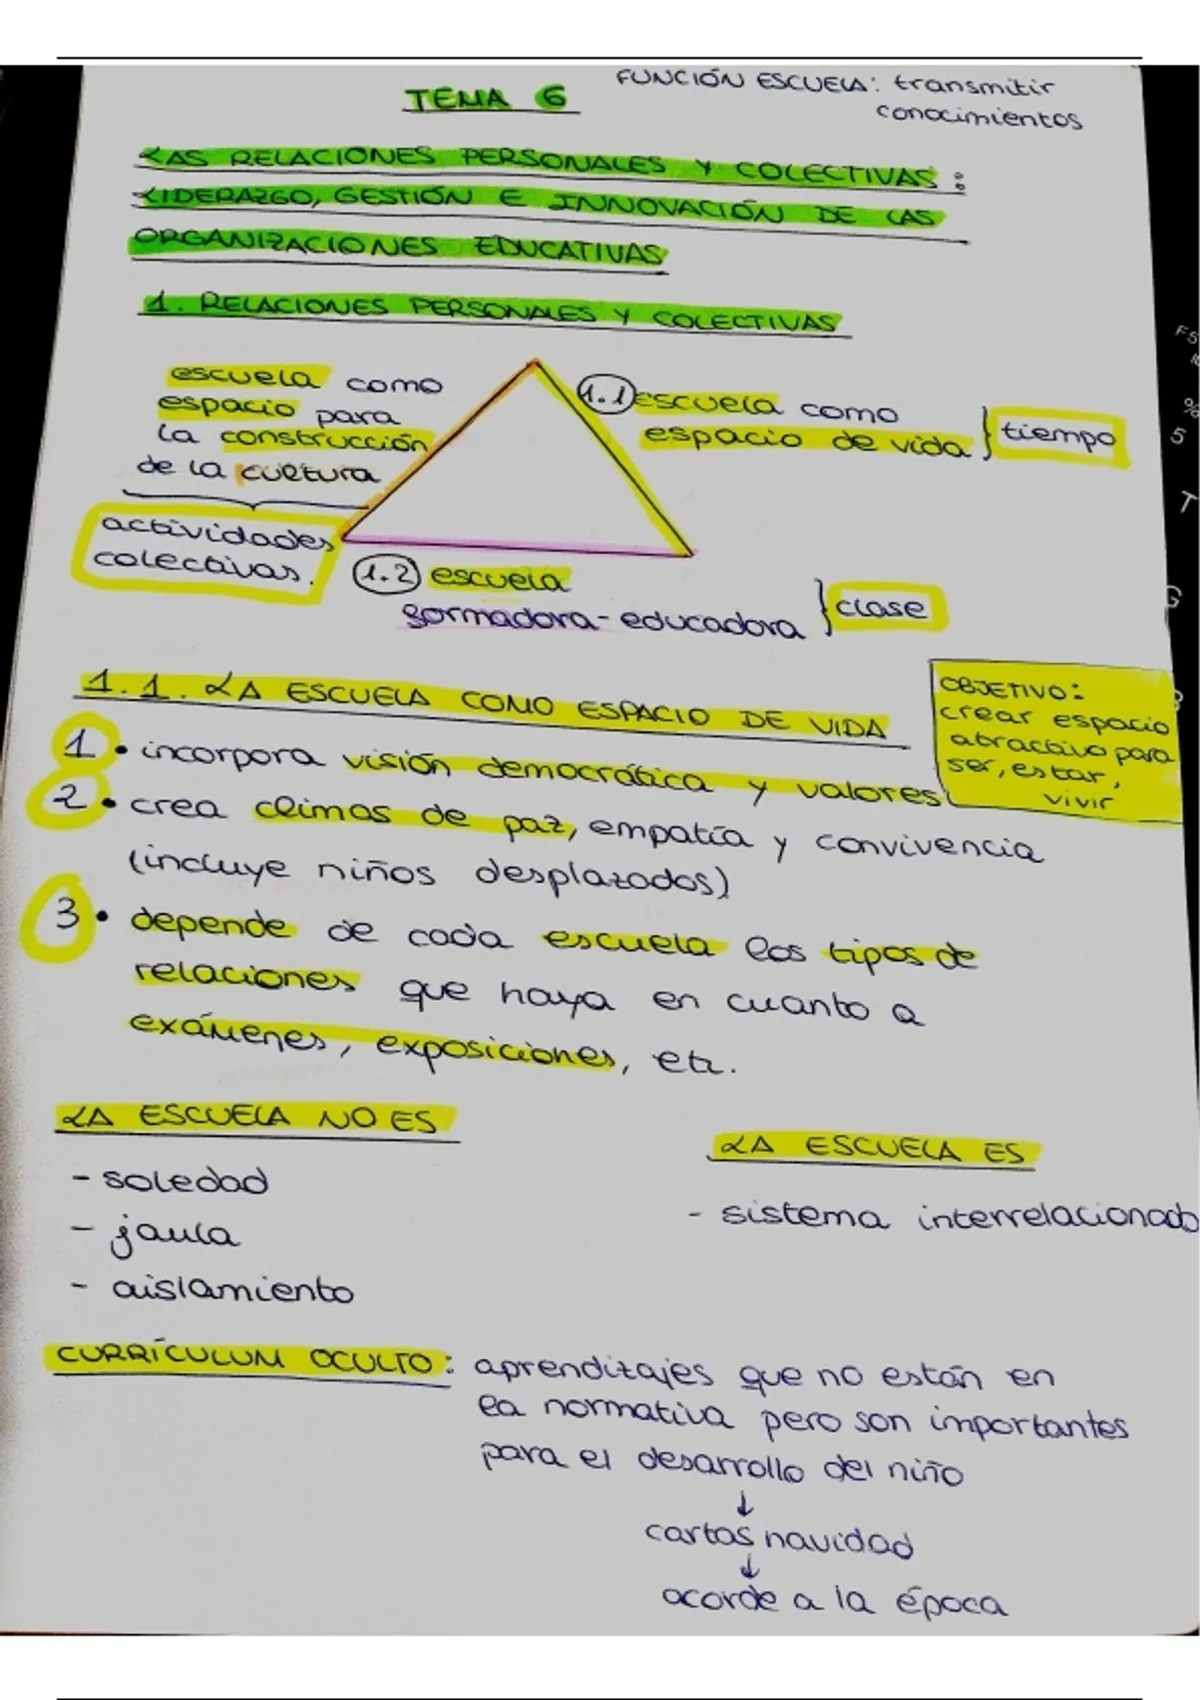 FUNCIÓN ESCUELA: transmitir
conocimientos
TEMA 6
LAS RELACIONES PERSONALES Y COLECTIVAS:
LIDERAZGO, GESTIÓN E INNOVACIÓN DE LAS
ORGANIZACIONES EDUCATIVAS
1. RELACIONES PERSONALES Y COLECTIVAS
escuela como
espacio para
la construcción
de la cultura
actividades
colectivas.
1.1 escuela como
espacio de vida
tiempo
1.2 escuela
formadora-educadora
clase
1.1. LA ESCUELA COMO ESPACIO DE VIDA
OBJETIVO:
crear espacio
atractivo para
ser, estar,
vivir
1 • incorpora visión democrática y valores
2 • crea climas de paz, empatía y convivencia
(incluye niños desplazados)
3 • depende de cada escuela los tipos de
relaciones que haya en cuanto a
exámenes, exposiciones, etc.
LA ESCUELA NO ES
- soledad
- jaula
- aislamiento
LA ESCUELA ES
- sistema interrelacionado
CURRÍCULUM OCULTO: aprendizajes que no están en
la normativa pero son importantes
para el desarrollo del niño
↓
cartas navidad
↓
acorde a la época
F5
%
5
T
G